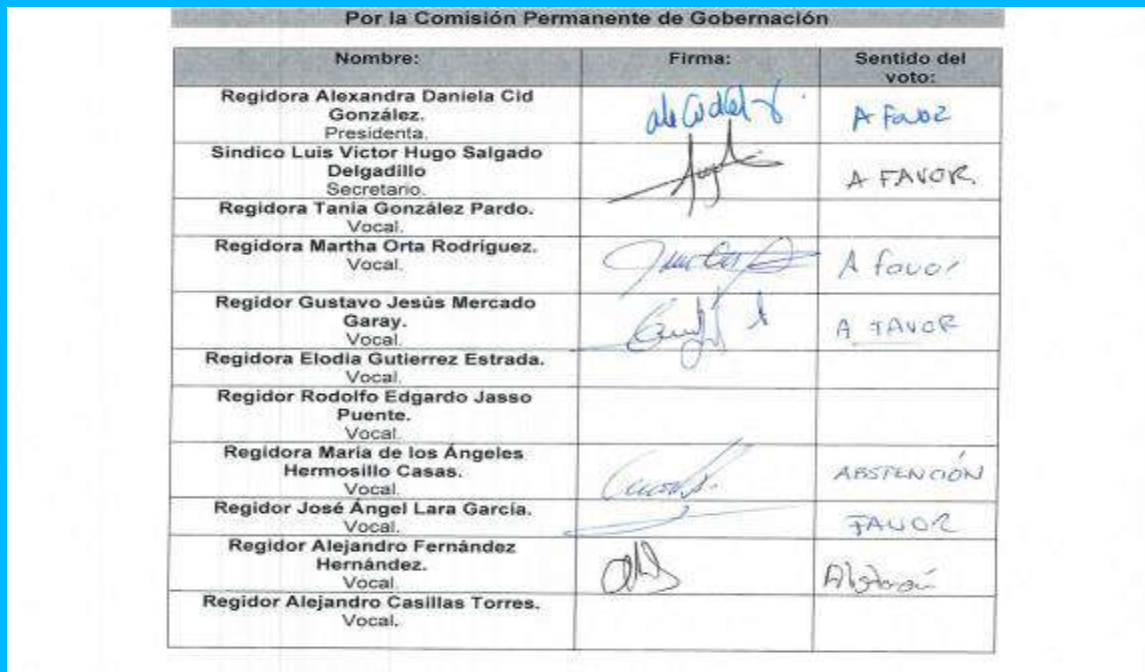 Por la Comisión Permanente de Gobernación
Nombre: Firma: Sentido del
voto:
Regidora Alexandra Daniela Cid
González.
Presidenta.
A Favor
Sindico Luis Victor Hugo Salgado
Delgadillo
Secretario.
A FAVOR.
Regidora Tania González Pardo.
Vocal.
Regidora Martha Orta Rodríguez.
Vocal.
A favor
Regidor Gustavo Jesús Mercado
Garay.
Vocal.
A FAVOR
Regidora Elodia Gutierrez Estrada.
Vocal.
Regidor Rodolfo Edgardo Jasso
Puente.
Vocal.
Regidora María de los Ángeles
Hermosillo Casas.
Vocal.
ABSTENCIÓN
Regidor José Ángel Lara García.
Vocal.
FAVOR
Regidor Alejandro Fernández
Hernández.
Vocal.
Regidor Alejandro Casillas Torres.
Vocal.